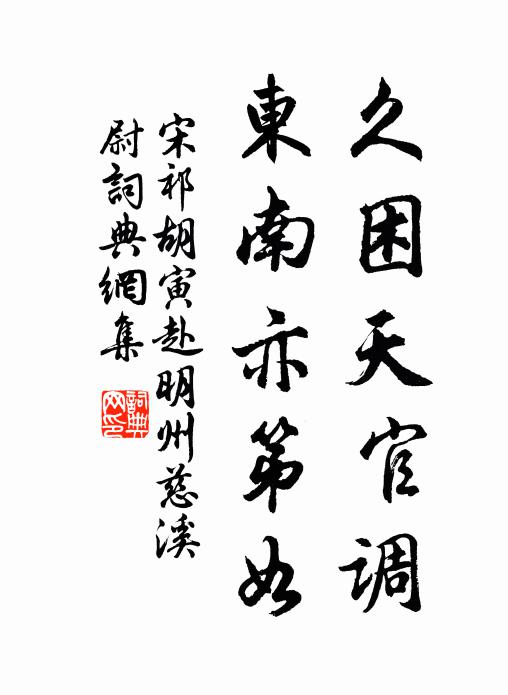 久困天官调
東南亦第如
宋祁胡寅赴明州慈溪
尉詞典網集
詞典网印